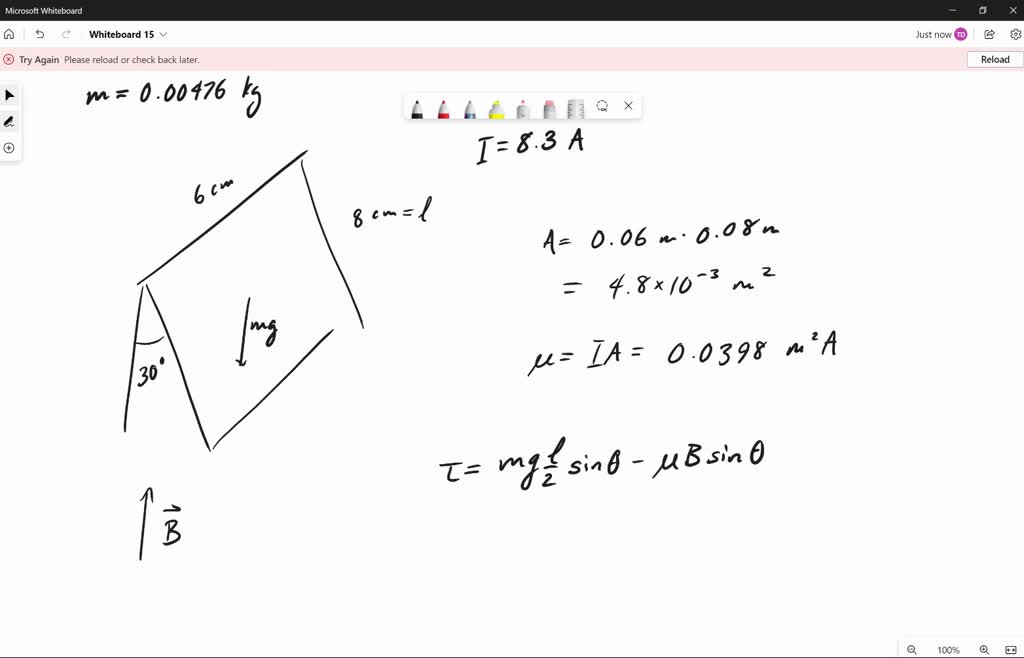 Microsoft Whiteboard
Whiteboard 15
Just now TD
Try Again Please reload or check back later.
Reload
m = 0.00476 kg
I = 8.3 A
6 cm
8 cm = l
A = 0.06 m · 0.08 m
= 4.8 × 10⁻³ m²
mg
μ = IA = 0.0398 m²A
30°
τ = mg l/2 sin θ − μ B sin θ
B⃗
100%